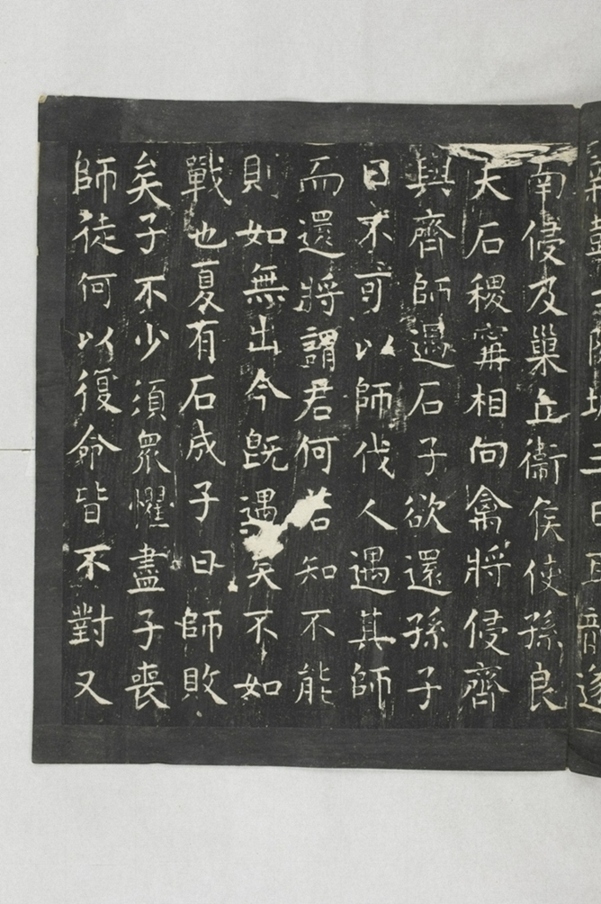 南侵及巢丘衛侯使孫良
夫石稷甯相向禽將侵齊
與齊師遇石子欲還孫子
曰不可以師伐人遇其師
而還將謂君何若知不能
則如無出今既遇矣不如
戰也夏有石成子曰師敗
矣子不少須眾懼盡子喪
師徒何以復命皆不對又